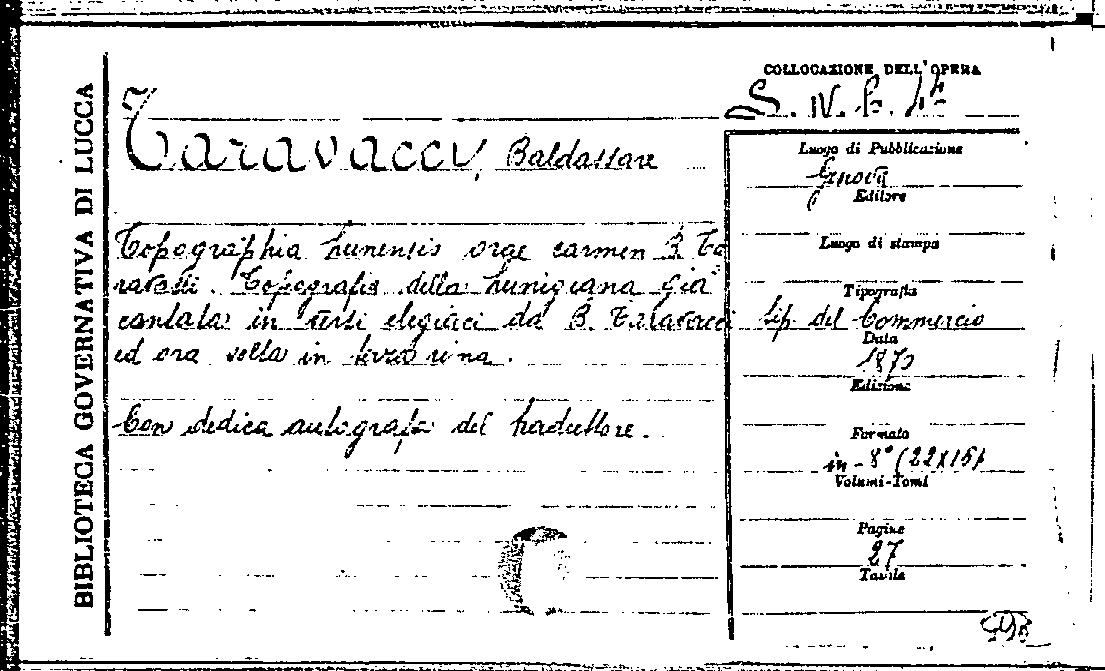 BIBLIOTECA GOVERNATIVA DI LUCCA
COLLOCAZIONE DELL'OPERA
S. IV. E.
Taravacci, Baldassare
Topographia Lunensis orae carmen B. Ta
ravacci. Topografia della Lunigiana già
cantata in versi elegiaci da B. Taravacci
ed ora volta in terza rima.
Con dedica autografa del traduttore.
Luogo di Pubblicazione
Genova
Editore
Luogo di stampa
Tipografia
Tip. del Commercio
Data
Edizione
Formato
in-8° (22X15)
Volumi-Tomi
Pagine
27
Tavole